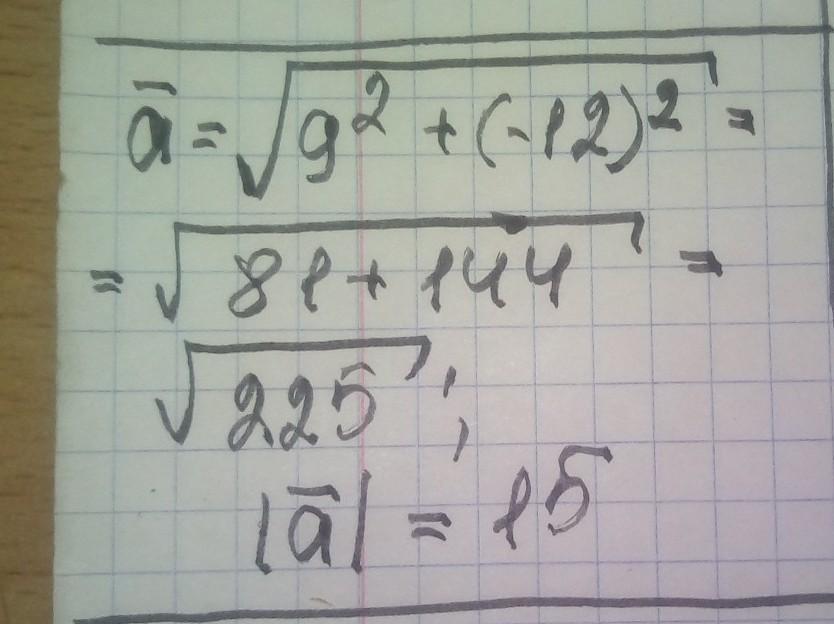 ā = √(9² + (-12)²) =
= √(81 + 144) =
√225 ;
|ā| = 15